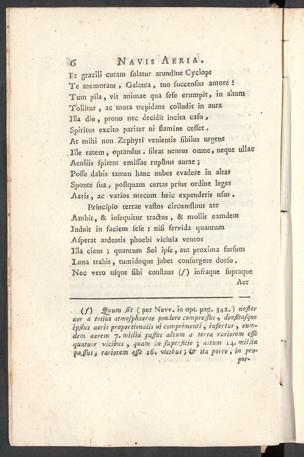 6 NAVIS AERIA.
Et gracili curam solatur arundine Cyclops
Te memorans, Galatea, tuo succensus amore!
Tum pila, vis animae qua sese erumpit, in altum
Tollitur, ac mota trepidans colludit in aura
Illa diu, prono nec decidit incita casu,
Spiritus excito pariter ni flamine cesset.
At mihi non Zephyri venientis sibilus urgens
Ille ratem, optandus. siteat nemus omne, neque ullae
Aeoliis spirent emissae rupibus aurae;
Posse dabis tamen hanc nubes evadere in altas
Sponte sua, postquam certas prius ordine leges
Aeris, ac varios mecum heic expenderis usus.
Principio terrae vastos circumfluus aer
Ambit, & insequitur tractus, & mollis eamdem
Induit in faciem sese: nisi fervida quantum
Asperat ardentis phoebi vicinia ventos
Illa ciens; quantum Sol ipse, aut proxima sursum
Luna trahit, tumidoque jubet consurgere dorso.
Nec vero usque sibi constans (f) infraque supraque
Aer
(f) Quum sit (per Nevv. in opt. pag. 342.) noster
aer a totius atmosphaerae pondere compressus, densitasque
ipsius aeris proportionalis vi comprimenti, infertur, eun-
dem aerem 7. millia passus altum a terra rariorem esse
quatuor vicibus, quam in superficie; altum 14. millia
passus, rariorem esse 16. vicibus; & ita porro, in pro-
por-